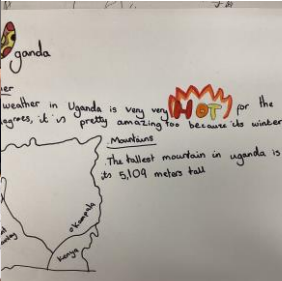 ganda
er
weather in Uganda is very very HOT for the
egrees, it's pretty amazing too because its winter
Mountains
The tallest mountain in uganda is
its 5,109 meters tall
Kampala
Kenya